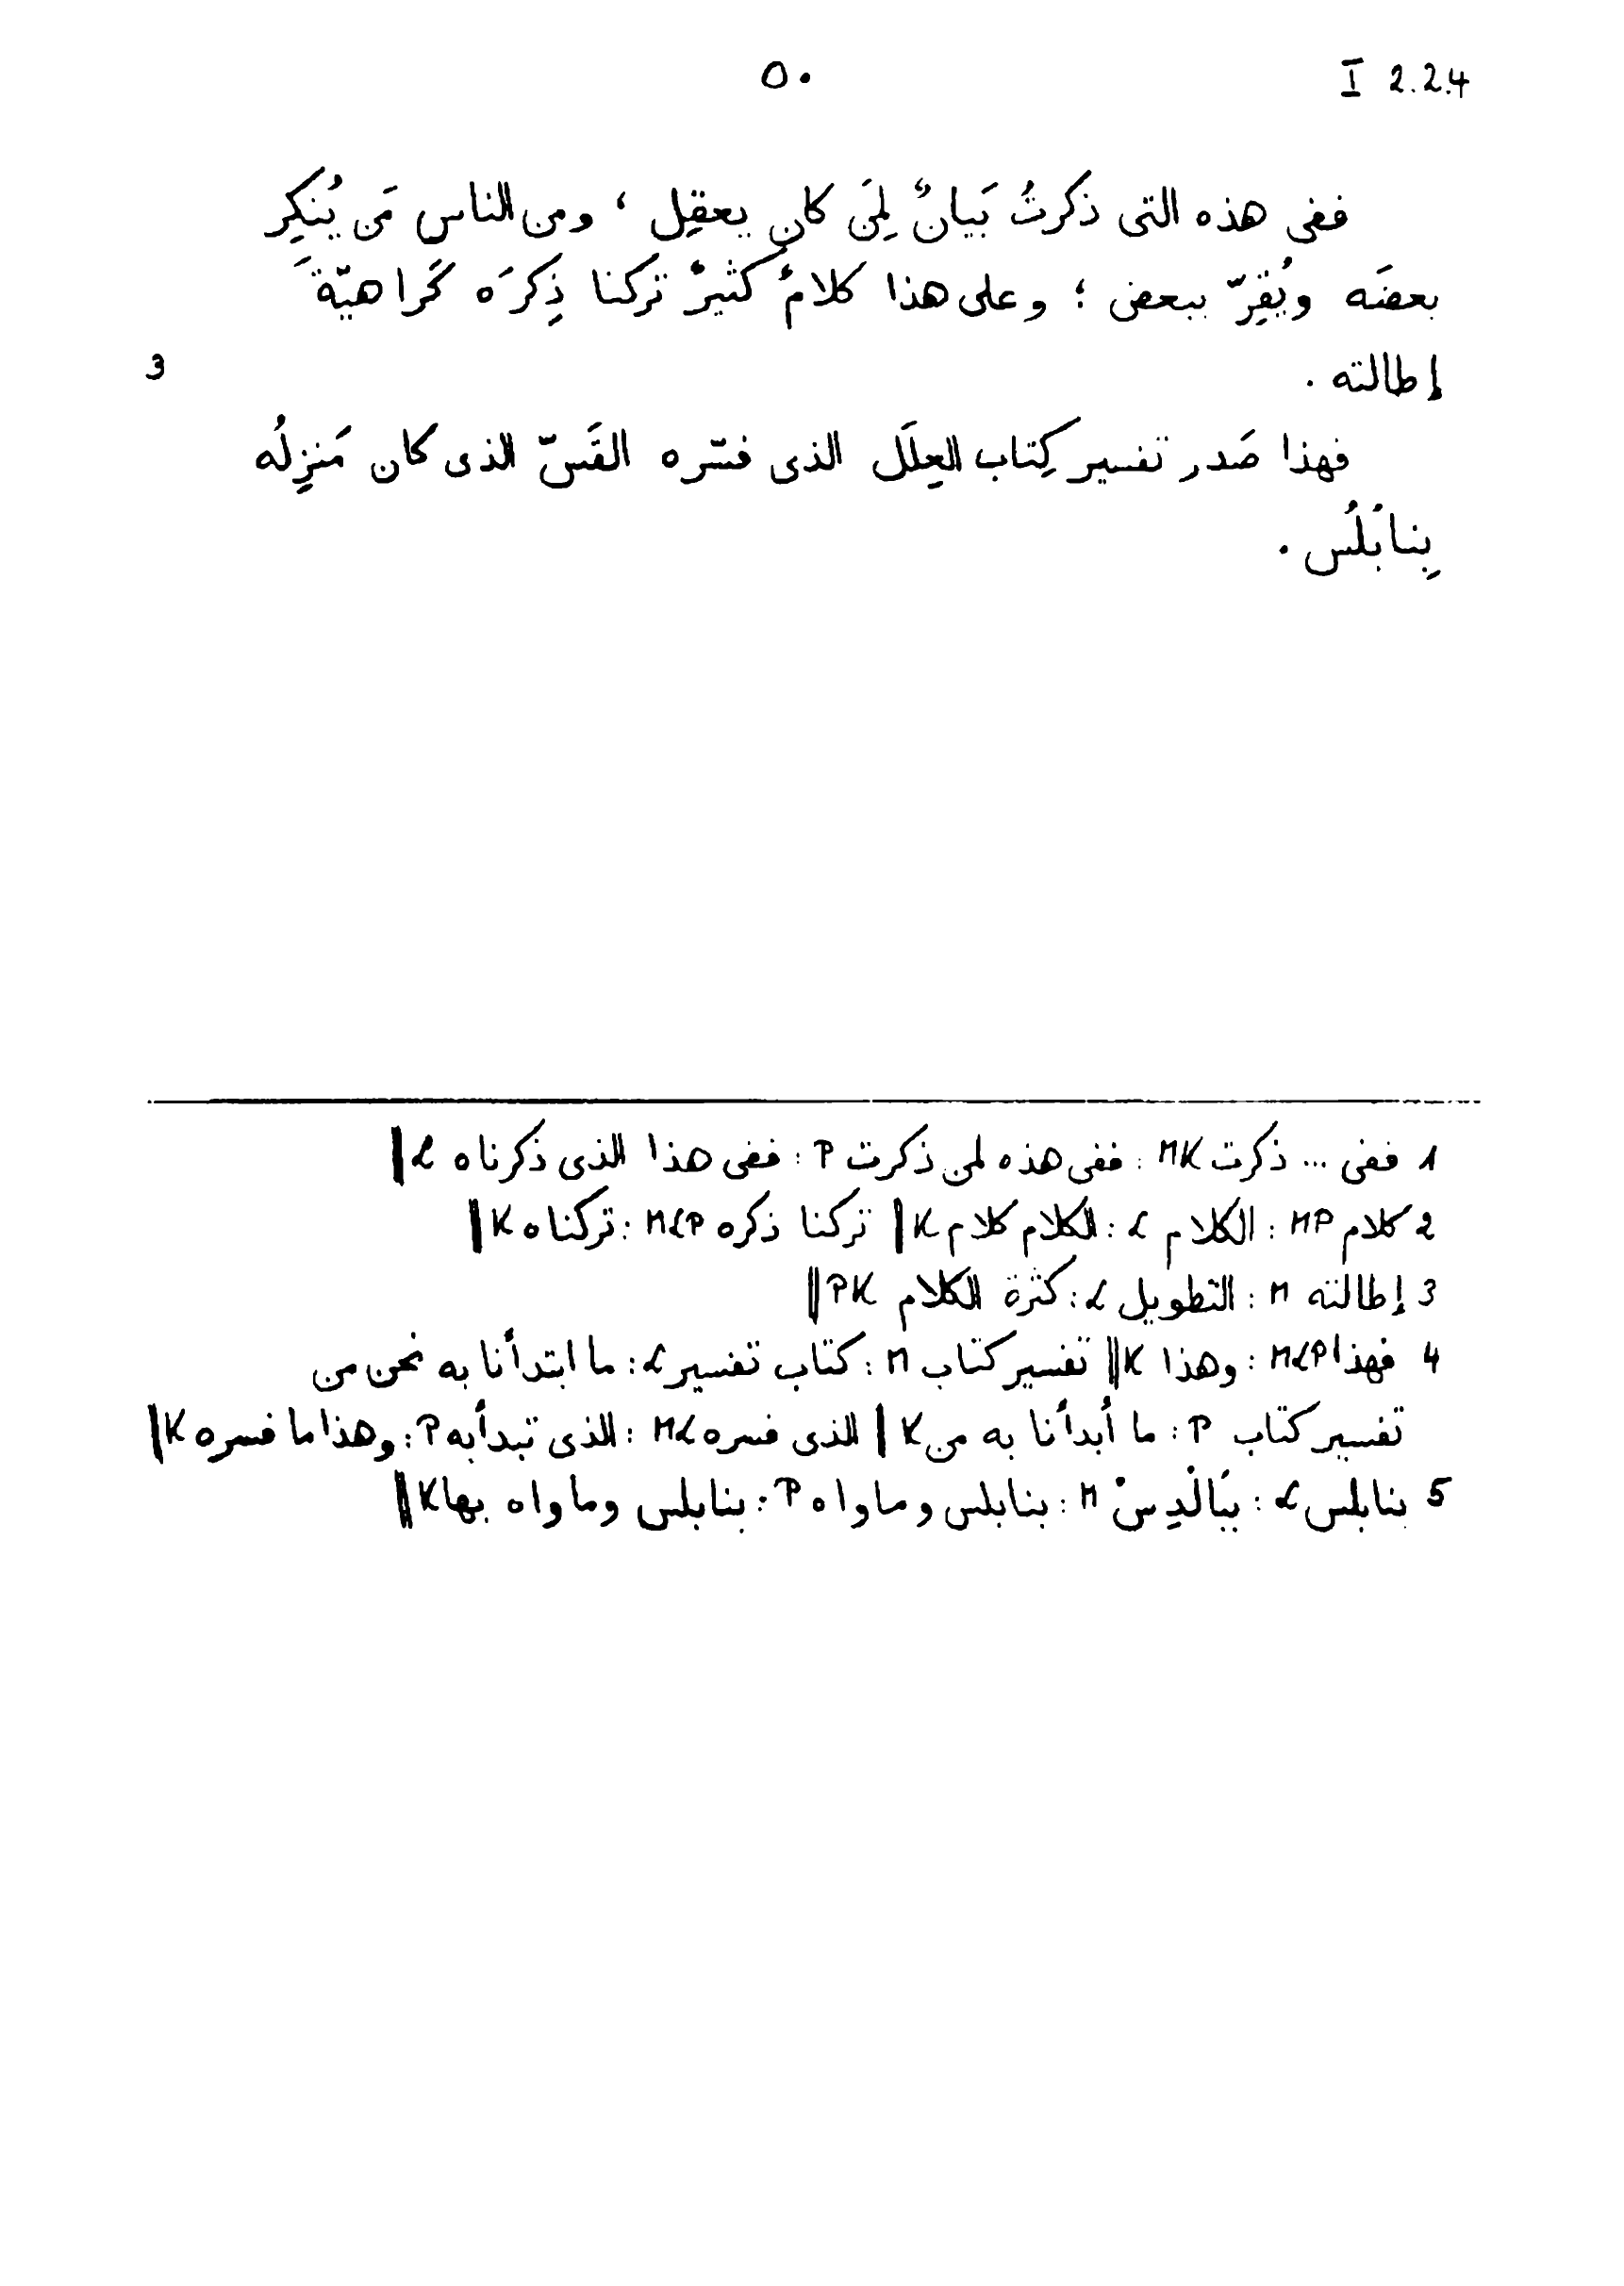 I 2.2.4
٥٠
ففى هذه التى ذكرتُ بَيانٌ لِمَن كان يعقِل ، ومن الناس مَن يُنكِر
بعضَه ويُقِرّ ببعض ؛ وعلى هذا كلامٌ كثيرٌ تركنا ذِكرَه كَراهيّةَ
إطالته . 3
فهذا صَدر تفسير كِتاب العِلَل الذى فسّره القَسّ الذى كان مَنزِلُه
بِنابُلُس .
1 ففى ... ذكرت MK : ففى هذه لمن ذكرت P : ففى هذا الذى ذكرناه L ||
2 كلام MP : الكلام L : الكلام كلام K || تركنا ذكره MLP : تركناه K ||
3 إطالته M : التطويل L : كثرة الكلام PK ||
4 فهذا MLP : وهذا K || تفسير كتاب M : كتاب تفسير L : ما ابتدأنا به نحن من
تفسير كتاب P : ما أبدأنا به من K || الذى فسره ML : الذى تبدأ به P : وهذا ما فسره K ||
5 بنابلس L : M : بنابلس وماواه P : بنابلس وماواه بها K ||